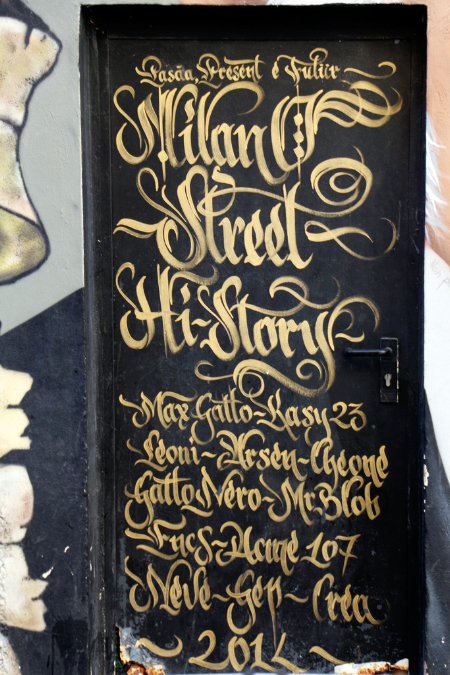 Pasâa, Present e Futür
Milano
Street
Hi-Story
Max Gatto - Kasy 23
Leoni - Arsen - Cheone
Gatto Nero - Mr. Blob
Encs - Acme 107
Neve - Gep - Crea
~ 2014 ~